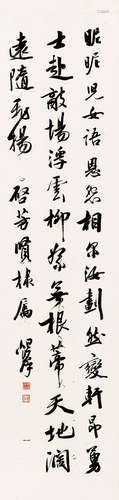 昵昵兒女語恩怨相尔汝劃然變軒昂勇
士赴敵場浮雲柳絮無根蒂天地闊
遠隨飛揚 啓芳賢棣屬